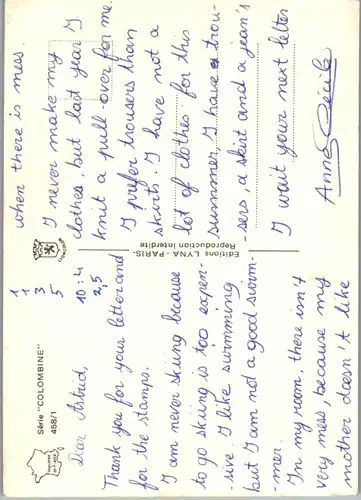 Série "COLOMBINE"
458/1
1
1
3
5
10:4
2,5
Dear Astrid,
Thank you for your letter and
for the stamps.
I am never skiing because
to go skiing is too expen-
sive. I like swimming
but I am not a good swim-
mer.
In my room, there isn't
very mess, because my
mother doesn't like
Editions LYNA -PARIS-
Reproduction interdite
when there is mess.
I never make my
clothes, but last year I
knit a pull over for me.
I prefer trousers than
skirts. I have not a
lot of clothes for this
summer, I have a trou-
sers, a skirt and a jean's
I want your next letter
Anne Cécile